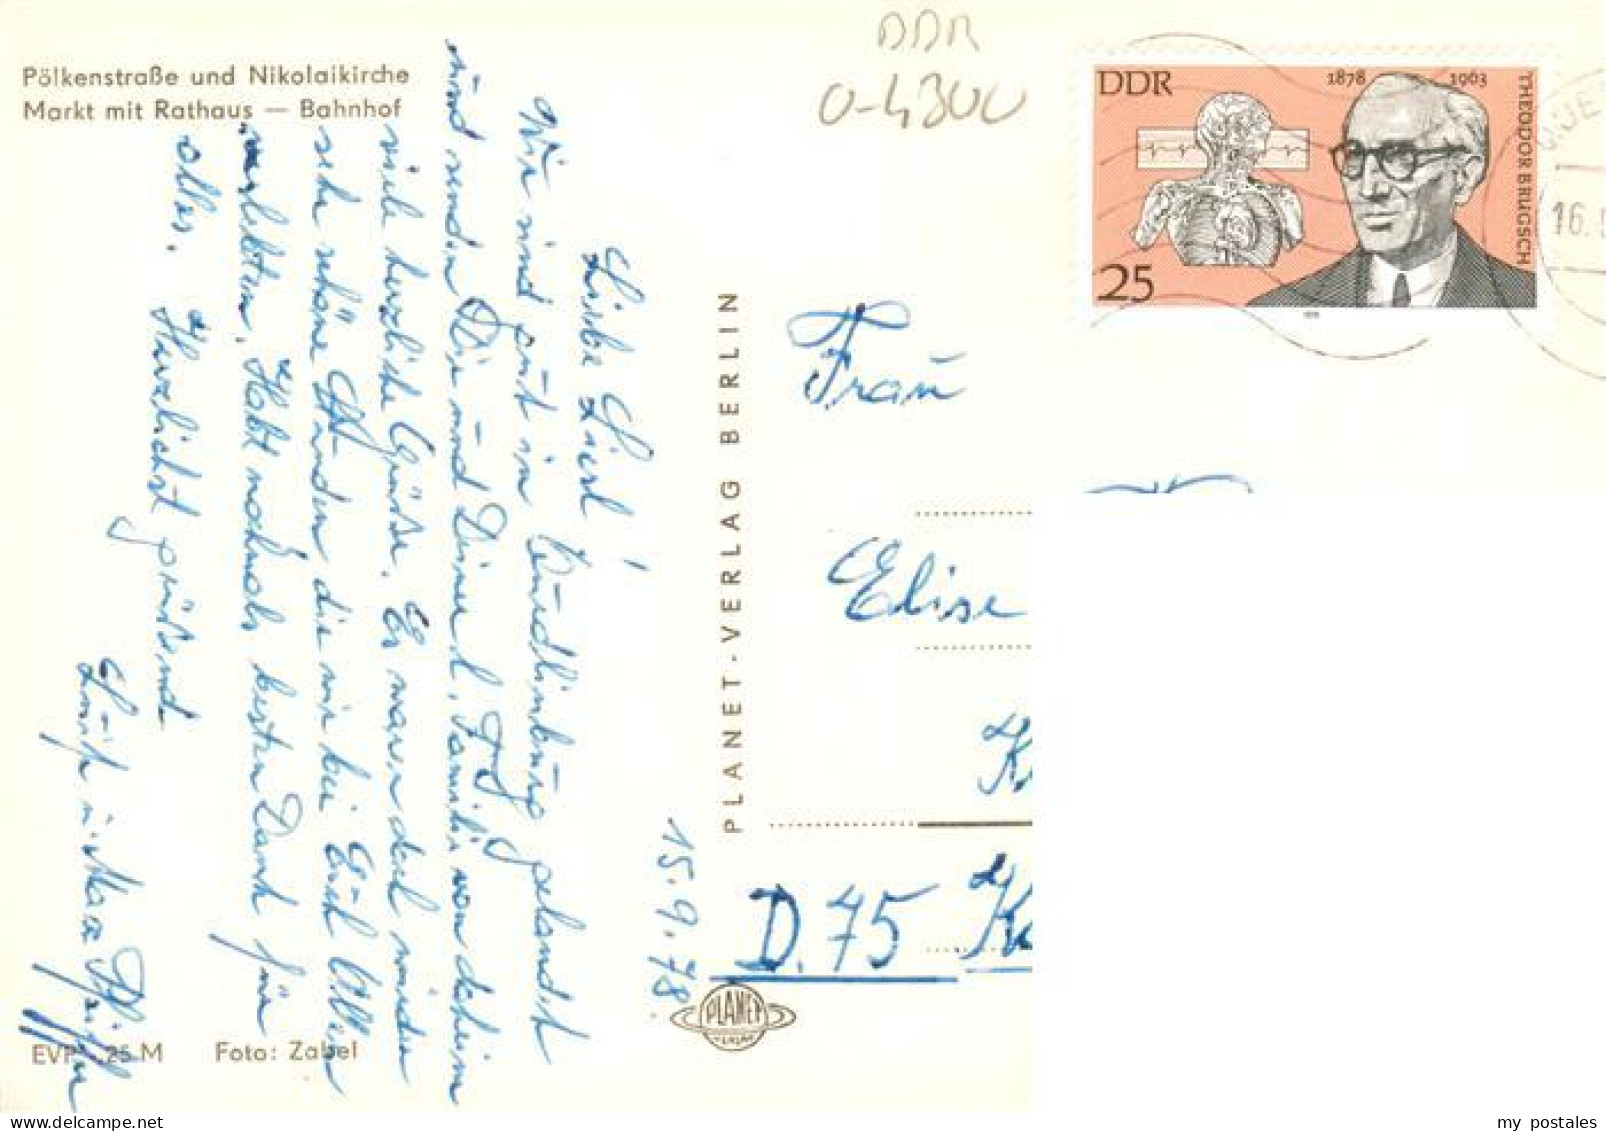 Pölkenstraße und Nikolaikirche
Markt mit Rathaus — Bahnhof
DDR
0-4300
DDR
1878 1963
THEODOR BRUGSCH
25
16.
15.9.78
Liebe Liesl!
Wir sind gut in Quedlinburg gelandet
und senden Dir und Deiner l. Familie von daheim
viele herzliche Grüße. Es waren doch wieder
sehr schöne Stunden, die wir bei Euch Allen
verlebten. Habt nochmals besten Dank für
alles. Herzlichst grüßend
PLANET-VERLAG BERLIN
Frau
Elise
D.75
PLANET
VERLAG
EVP -,25 M Foto: Zabel
my postales